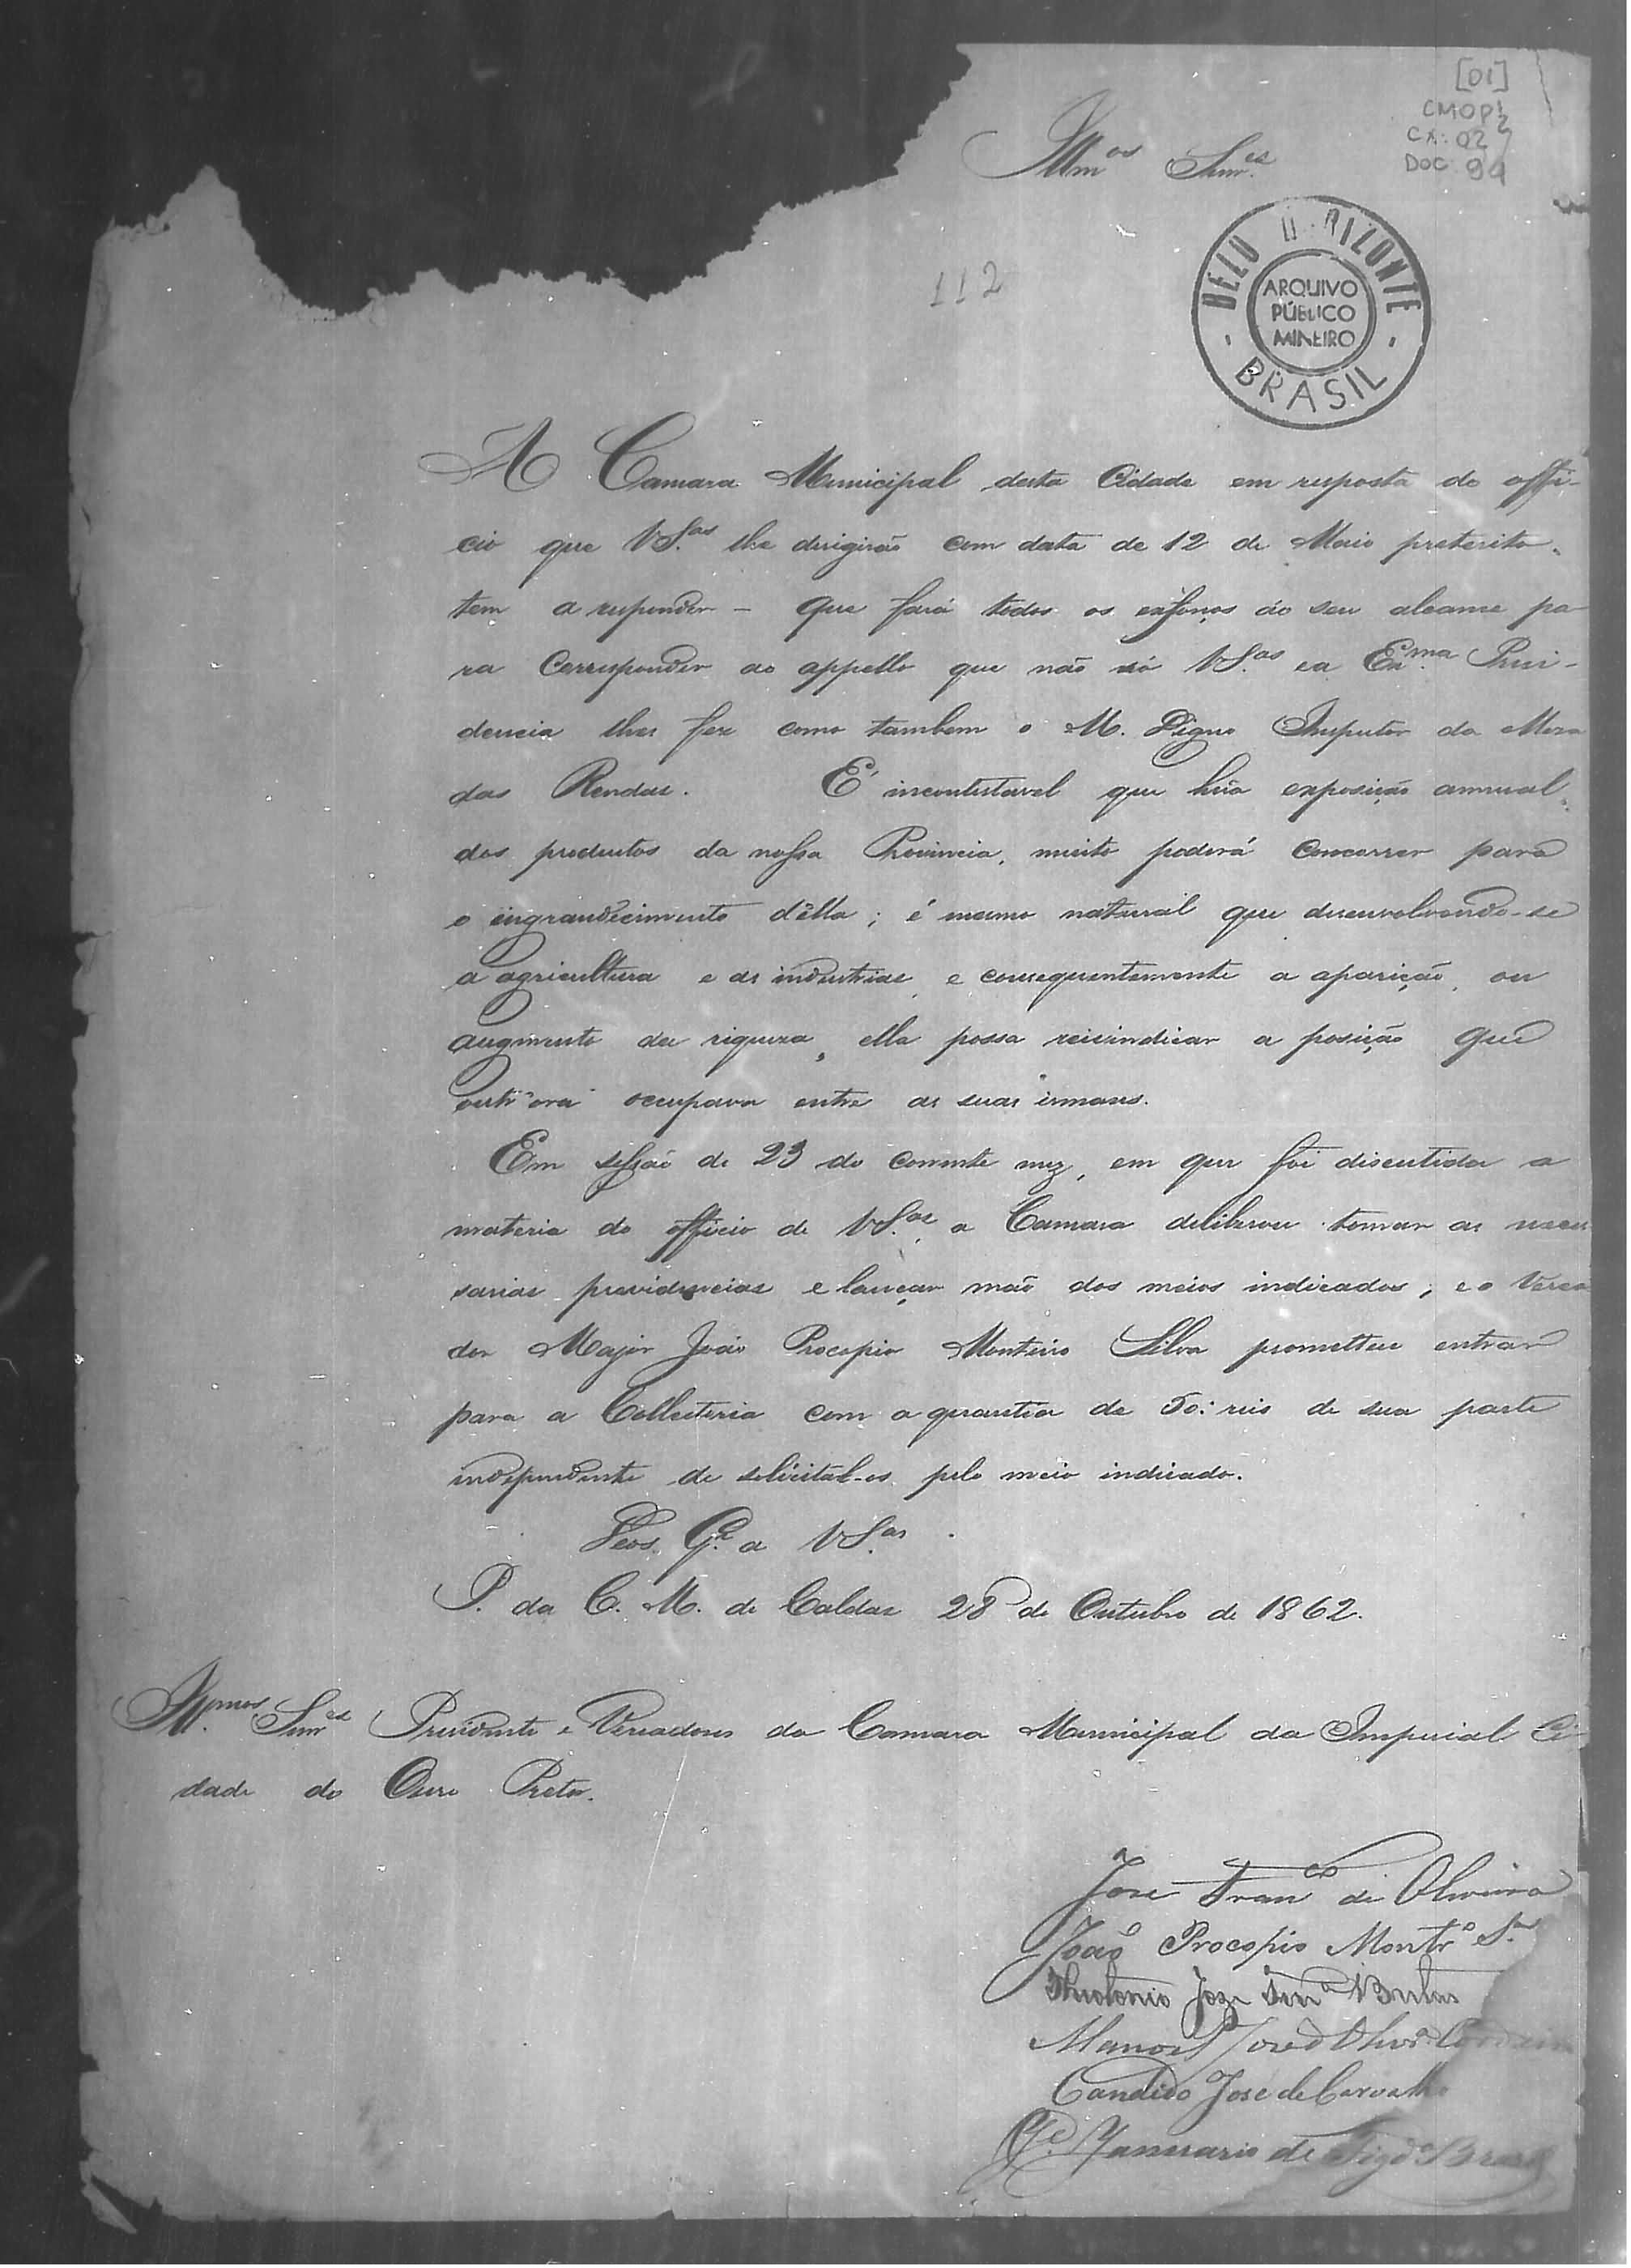 [01]
CMOP 1/2
CX: 02
DOC: 94
Illm.os Snr.es
112
BELO HORIZONTE
ARQUIVO
PÚBLICO
MINEIRO
BRASIL
A Camara Municipal desta Cidade em resposta do offi-
cio que VS.as lhe dirigirão com data de 12 de Maio preterito,
tem a responder - que fará todos os esforços ao seu alcance pa-
ra corresponder ao appello que não só VS.as e a Ex.ma Presi-
dencia lhes fez como tambem o M. Digno Inspector da Meza
das Rendas. É incontestavel que hũa exposição annual
dos productos da nossa Provincia, muito poderá concorrer para
o ingrandecimento d'ella; é mesmo natural que desenvolvendo-se
a agricultura e as industrias, e consequentemente a aparição, ou
augmento da riqueza, ella possa reivindicar a posição que
outr'ora occupava entre as suas irmans.
Em sessão de 23 do corrente mez, em que foi discutida a
materia do officio de VS.as a Camara deliberou tomar as neces
sarias providencias e lançar mão dos meios indicados; e o Verea
dor Major João Procopio Monteiro Silva prometteu entrar
para a Collectoria com a quantia de 50: reis de sua parte
independente de solicital-os pelo meio indicado.
Deos G.e a VS.as
P. da C. M. de Caldas 28 de Outubro de 1862.
Ill.mos Snr.es Presidente e Vereadores da Camara Municipal da Imperial Ci
dade do Ouro Preto.
José Fran.co de Oliveira
João Procopio Montr.o S.a
Theotonio Joze
Manoel José d'Olivr.a
Candido José de Carvalho
Januario de Figd.o